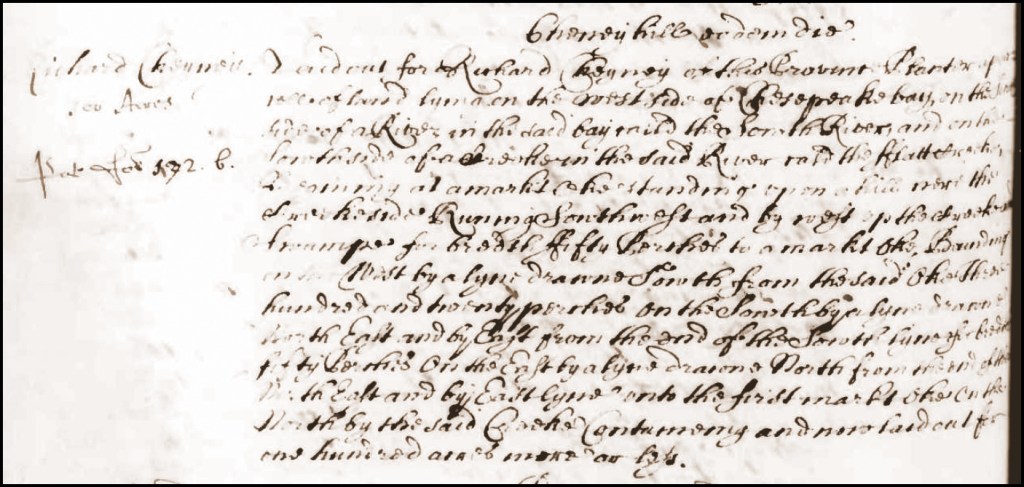 Cheneyhill eodem die.
Richard Cheyney.
100 Acres
Pat. fol 592. b.
Laid out for Richard Cheyney of this Province Planter a par
cell of land lying on the West side of Chesepeake bay, on the
side of a River in the said bay calld the South River, and on the
South side of a Creeke in the said River calld the Flatt Creeke
Begining at a markt Oke standing upon a hill nere the
Creeke side Runing Southwest and by west up the Creeke
swampe for bredth fifty Perches to a markt Oke, Bounding
on the West by a lyne drawne South from the said Oke Three
hundred and twenty perches on the South by a lyne drawne
North East and by East from the end of the South lyne of bredth
fifty Perches On the East by a lyne drawne North from the end of the
North East and by East lyne unto the first markt Oke On the
North by the said Creeke Contameng and now laid out for
one hundred acres more or less.